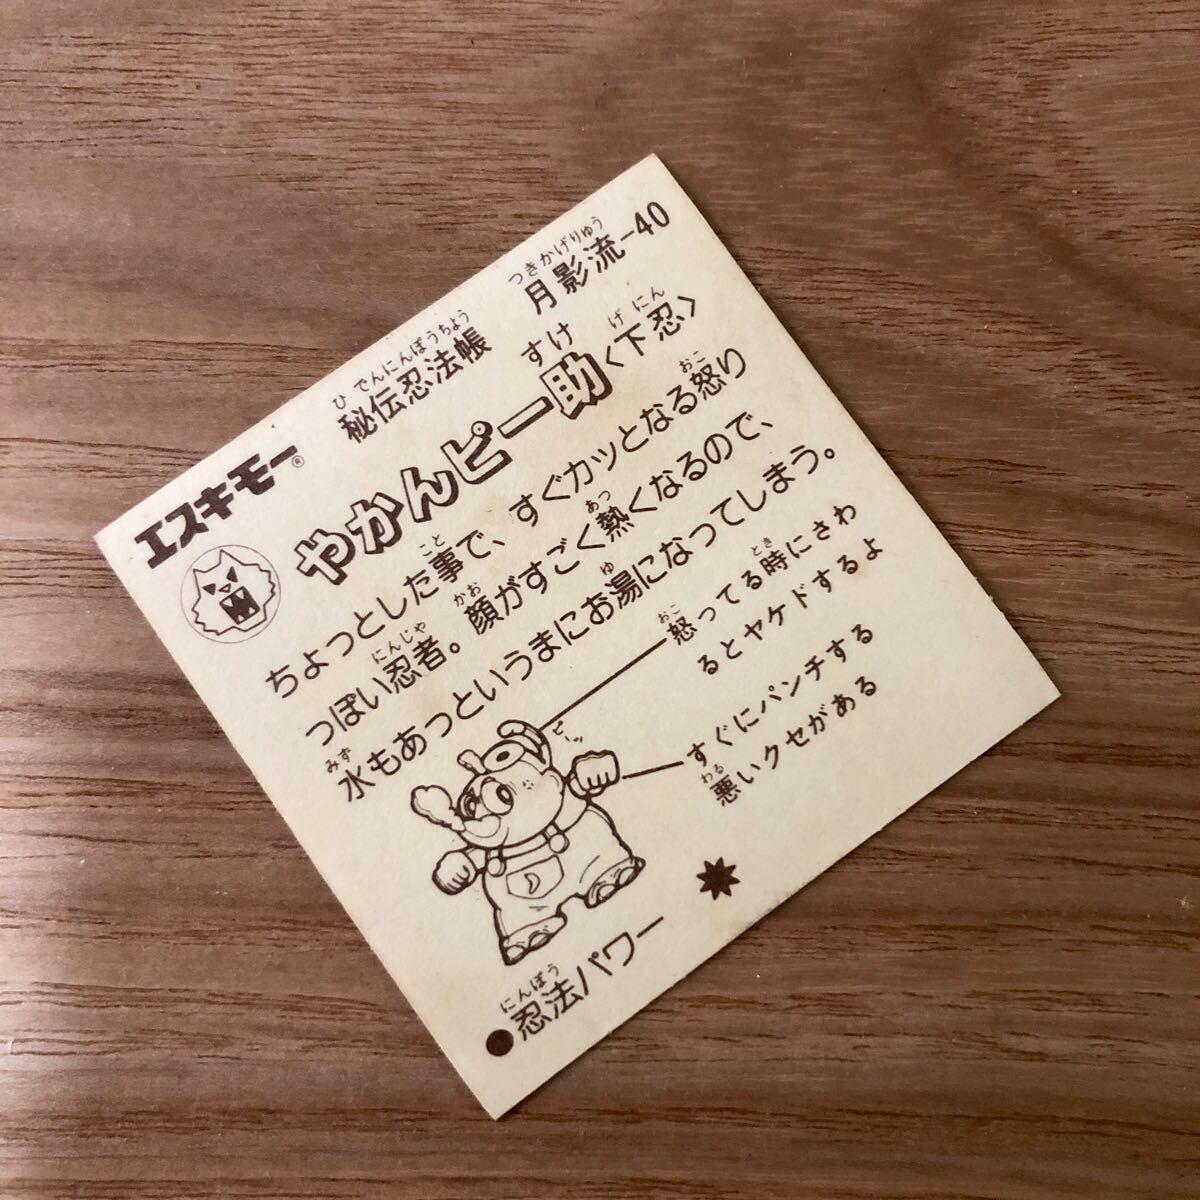 エスキモー®
ひでんにんぽうちょう
秘伝忍法帳
つきかげりゅう
月影流-40
すけ
げにん
やかんピー助〈下忍〉
こと
おこ
ちょっとした事で、すぐカッとなる怒り
にんじゃ
かお
あつ
っぽい忍者。顔がすごく熱くなるので、
みず
ゆ
水もあっというまにお湯になってしまう。
おこ
とき
怒ってる時にさわ
るとヤケドするよ
ピーッ
すぐにパンチする
わる
悪いクセがある
にんぽう
●忍法パワー